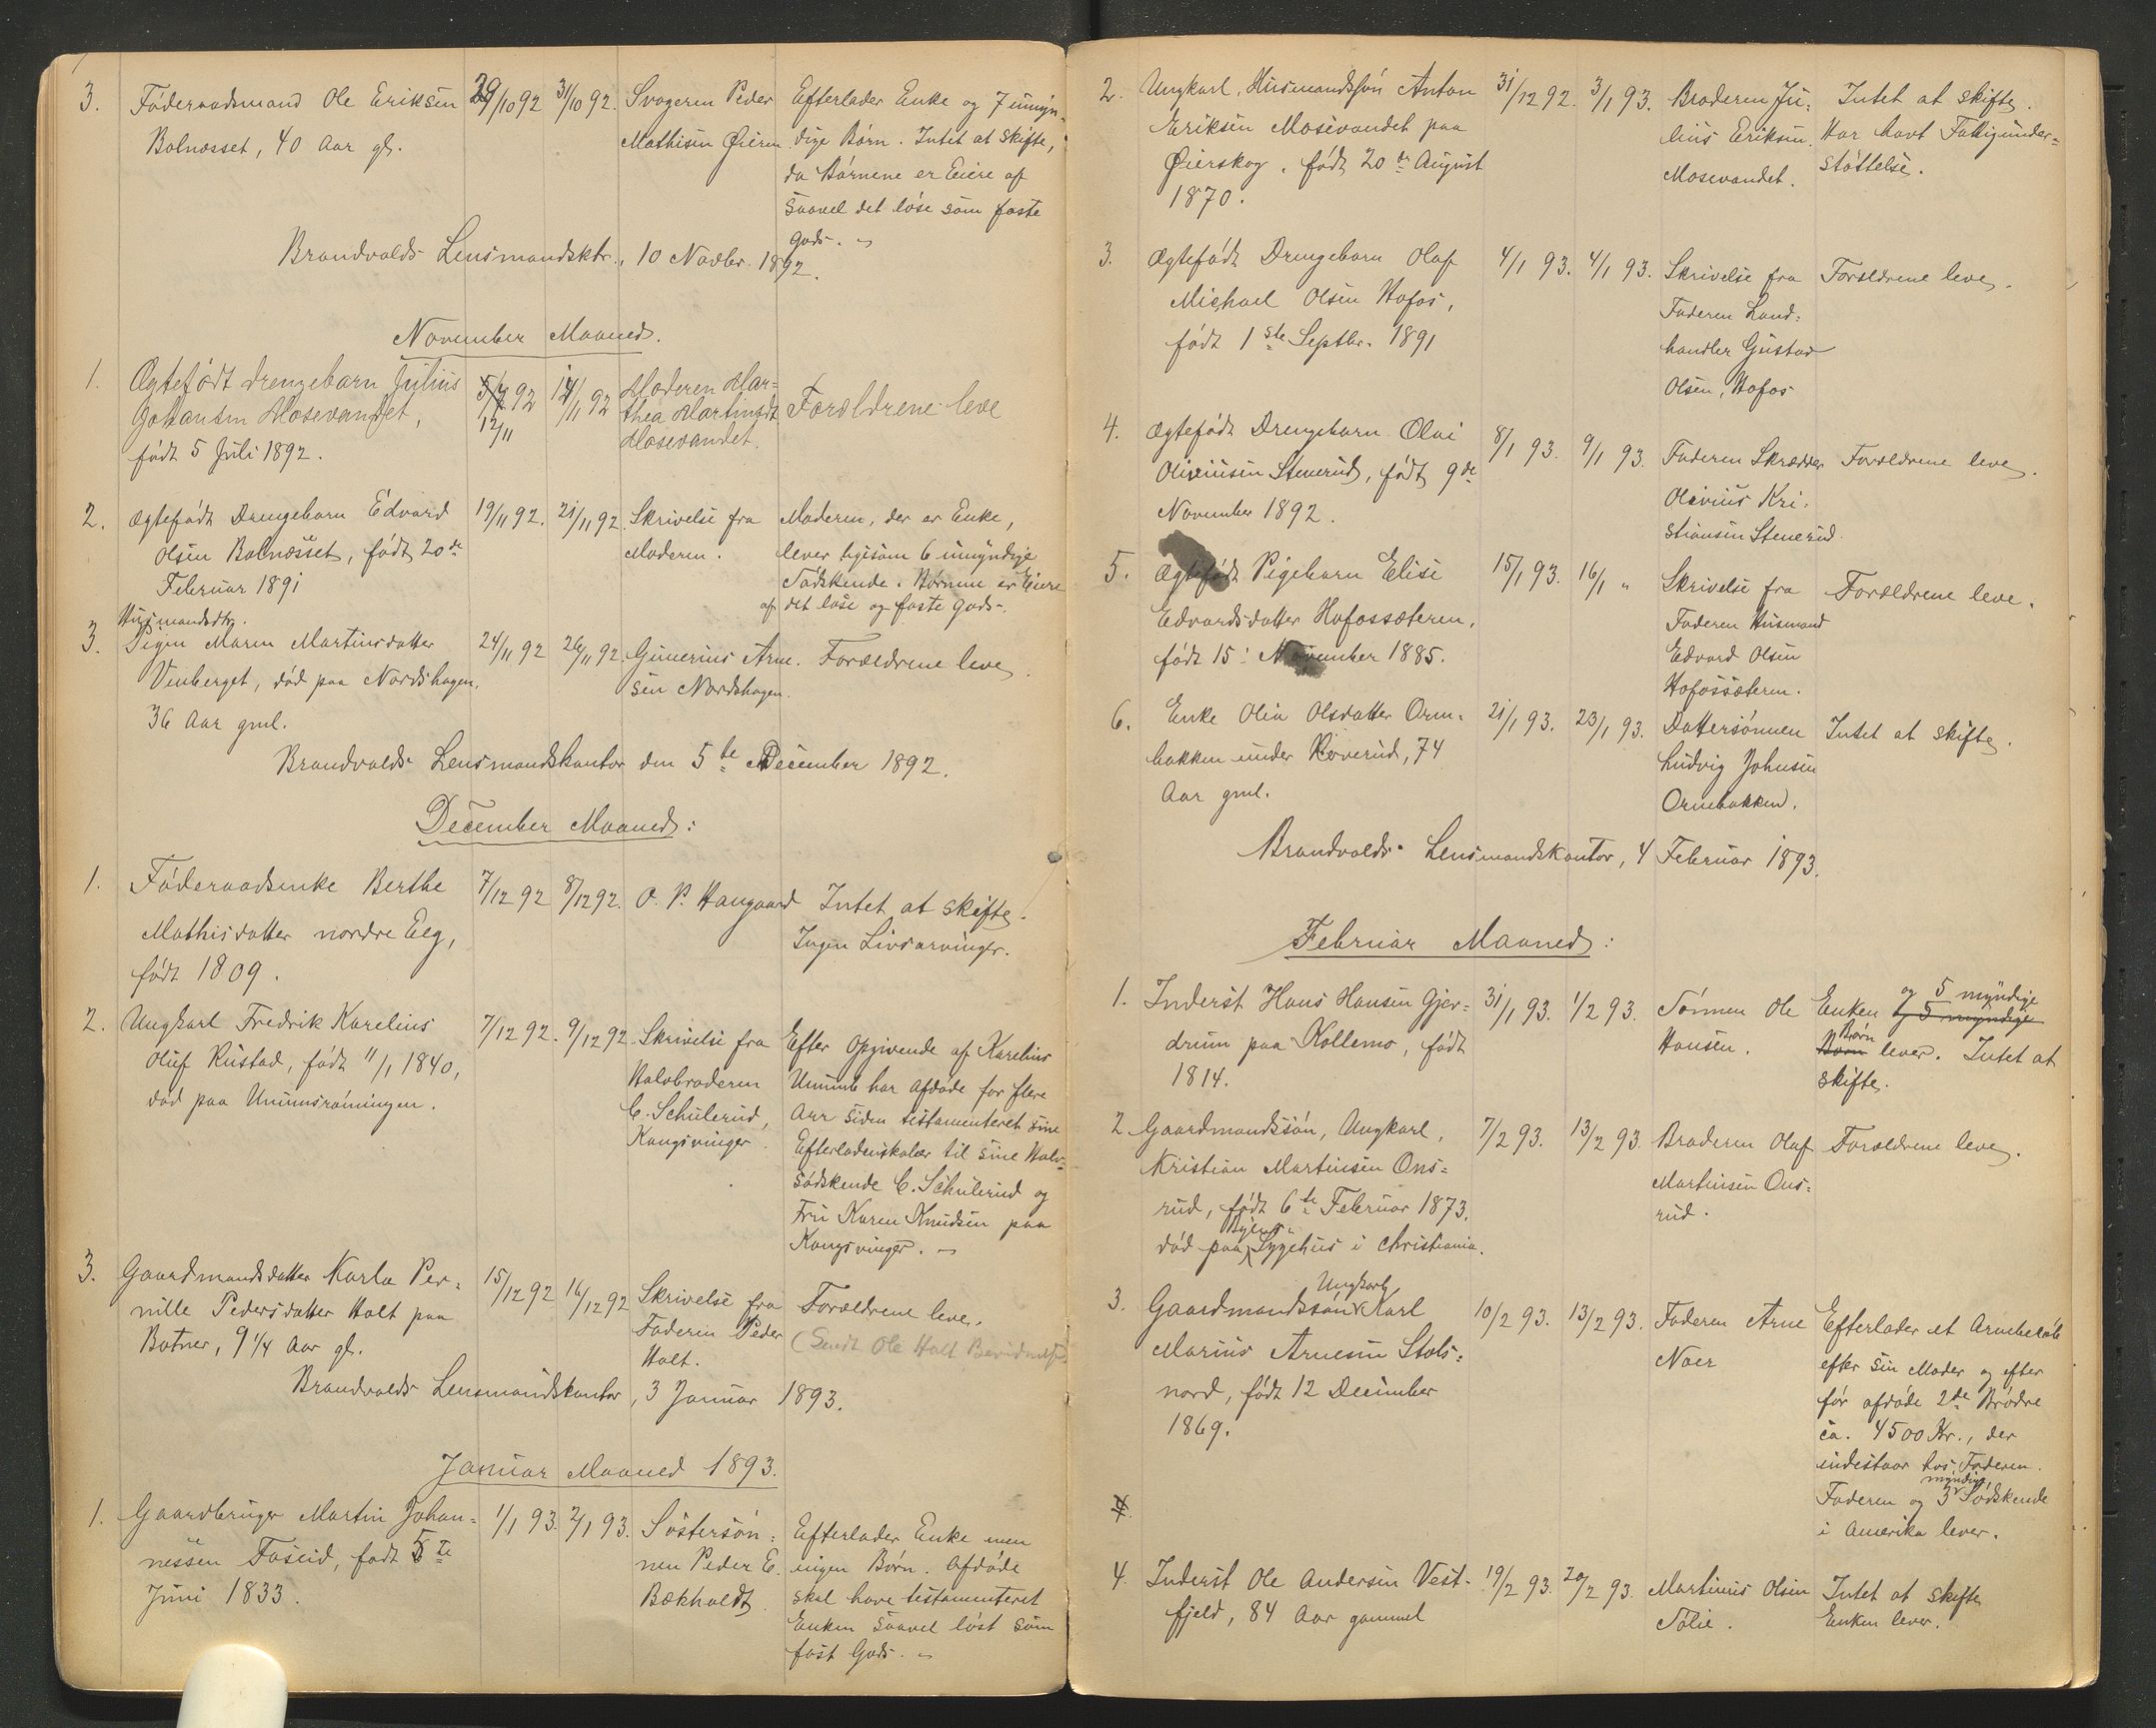 3. Föderaadsmand Ole Eriksen 29/10 92 31/10 92. Svogeren Peder Efterlader Enke og 7 umyn-
Bolnæsset, 40 Aar gl. Mathisen Øieren dige Børn. Intet at skifte,
da Børnene er Eiere af
saavel det løse som faste
gods. „
Brandvolds Lensmandsktr., 10 Novbr. 1892.
November Maaned.
1. Ægtefödt drengebarn Julius 5/7 92 14/11 92 Moderen Mar-
Johansen Mosevandet, 12/11 thea Martinsdt Forældrene leve
födt 5 Juli 1892. Mosevandet.
2. Ægtefödt Drengebarn Edvard 19/11 92. 21/11 92. Skrivelse fra Moderen, der er Enke,
Olsen Bolnæsset, födt 20de Moderen. lever ligesom 6 umyndige
Februar 1891 Södskende. Börnene er Eiere
af det löse og faste gods.
Husmandsdtr.
3. Pigen Maren Martinsdatter 24/11 92 26/11 92. Gunerius Arne- Forældrene leve.
Vinberget, död paa Nordshagen, sen Nordshagen.
36 Aar gml.
Brandvolds Lensmandskontor den 5te December 1892.
December Maaned:
1. Föderaadsenke Berthe 7/12 92 8/12 92. O. P. Haugaard Intet at skifte.
Mathisdatter nordre Eeg, Ingen Livsarvinger.
födt 1809.
2. Ungkarl Fredrik Karelius 7/12 92. 9/12 92. Skrivelse fra Efter Opgivende af Karelius
Oluf Rustad, födt 11/1 1840, Halvbroderen Ummb har Afdöde for flere
död paa C. Schulerud, Aar siden testamenteret sine
Kongsvinger. Efterladenskaber til sine Halv-
södskende C. Schulerud og
Fru Karen Knudsen paa
Kongsvinger. „
3. Gaardmandsdatter Karla Per- 15/12 92 16/12 92 Skrivelse fra Forældrene leve.
nille Pedersdatter Holt paa Faderen Peder (Sendt Ole Holt
Botner, 9 1/4 Aar gl. Holt.
Brandvolds Lensmandskontor, 3 Januar 1893.
Januar Maaned 1893.
1. Gaardbruger Martin Johan- 1/1 93. 2/1 93. Söstersön- Efterlader Enke men
nessen Foseid, födt 5te nen Peder E. ingen Børn. Afdöde
Juni 1833. Bækholdt skal have testamenteret
Enken saavel löst som
fast Gods. „
2. Ungkarl, Husmandssön Anton 31/12 92. 3/1 93. Broderen Ju- Intet at skifte.
Eriksen Mosevandet paa lius Eriksen Har havt Fattigunder-
Øierskog, födt 20de August Mosevandet. støttelse.
1870.
3. Ægtefödt Drengebarn Olaf 4/1 93. 4/1 93. Skrivelse fra Forældrene leve.
Michael Olsen Hofos, Faderen Land-
födt 1ste Septbr. 1891 handler Gustav
Olsen, Hofos
4. Ægtefödt Drengebarn Olai 8/1 93. 9/1 93. Faderen Skrædder Forældrene leve.
Oliviusen Stenerud, födt 9de Olivius Kri-
November 1892. stiansen Stenerud.
5. Ægtefödt Pigebarn Elise 15/1 93. 16/1 „ Skrivelse fra Forældrene leve.
Edvardsdatter Hofossæteren, Faderen Husmand
födt 15: November 1885. Edvard Olsen
Hofossæteren.
6. Enke Olea Olsdatter Orm- 21/1 93. 23/1 93. Dattersönnen Intet at skifte.
bakken under Röverud, 74 Ludvig Johnsen
Aar gml. Ormbakken.
Brandvolds Lensmandskontor, 4 Februar 1893.
Februar Maaned:
1. Inderst Hans Hansen Gjer- 31/1 93. 1/2 93. Sönnen Ole Enken og 5 myndige
drum paa Kollemo, födt Hansen. Börn lever. Intet at
1814. skifte.
2 Gaardmandssön, Ungkarl, 7/2 93. 13/2 93. Broderen Olaf Forældrene leve.
Kristian Martinsen Ons- Martinsen Ons-
rud, födt 6te Februar 1873, rud.
död paa Byens Sygehus i Christiania.
3. Gaardmandssön Ungkarl Karl 10/2 93. 13/2 93. Faderen Arne Efterlader et Arvebelöb
Marius Arnesen Stols- Noer efter sin Moder og efter
nord, födt 12 December för afdöde 2de Brödre
1869. ca. 4500 Kr., der
indestaar hos Faderen.
Faderen og 3 myndige Södskende
4. i Amerika lever.
4. Inderst Ole Andersen Vest- 19/2 93. 20/2 93. Martinius Olsen Intet at skifte
fjeld, 84 Aar gammel Tolie. Enken lever.